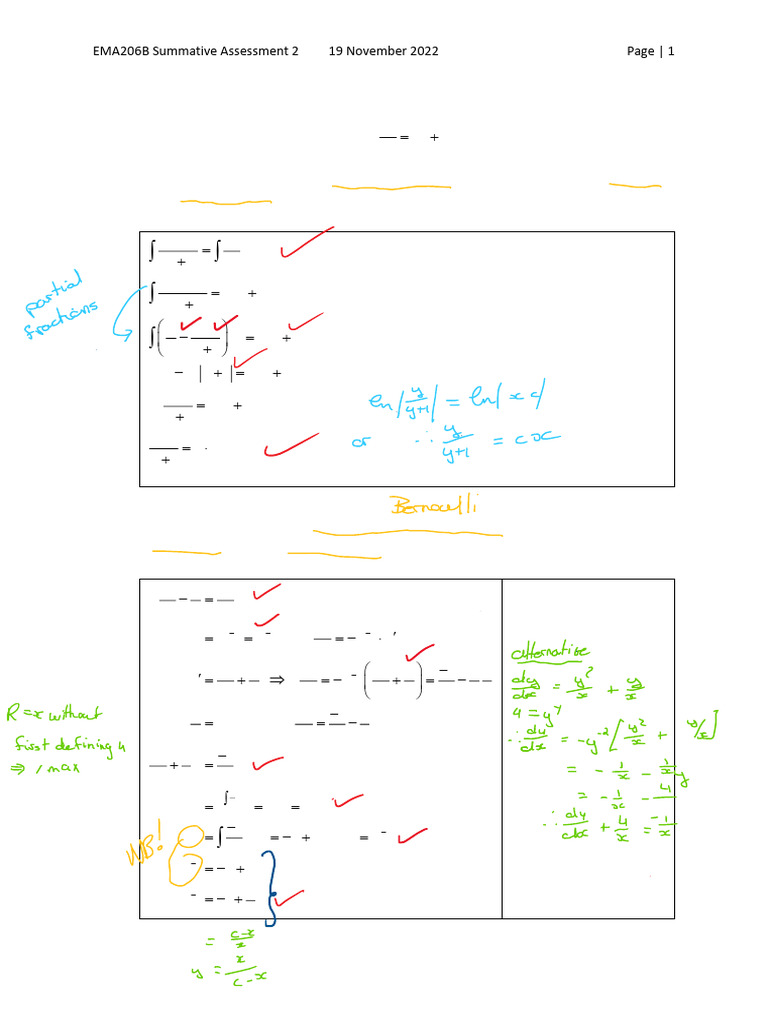 EMA206B Summative Assessment 2 19 November 2022 Page | 1
— = +
∫ —— = ∫ —
+
partial
fractions
∫ —— = +
+
∫ ( — − —— ) = +
+
− | + | = +
ln|y/y+1| = ln|xc|
—— = +
+
or ∴ y/y+1 = cx
—— = .
+
Bernoulli
— − — = —
= ⁻ = ⁻ — = − ⁻ · ′
′ = — + — ⇒ — = − ⁻ ( — + — ) = — − — —
— = — = — − —
— + — = —
= ∫ — = =
= ∫ — = − + = ⁻
⁻ = − +
⁻ = − + —
alternative
dy/dx = y²/x + y/x
∴ dy/dx = -y⁻²[y²/x + y/x]
= - 1/x - 1/x y
= - 1/x - 4/
∴ d4/dx + 4/x = -1/x
R = x without
first defining 4
⇒ 1 max
NB!
= c-x/x
y = x/c-x